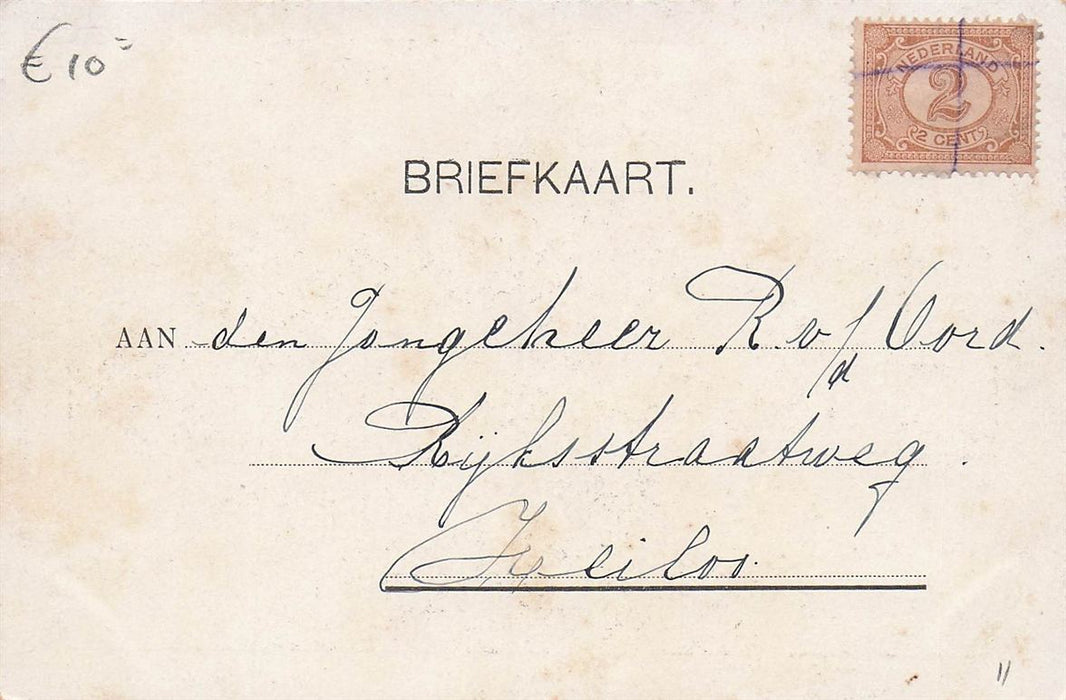 € 10 =
NEDERLAND
2
2 CENT
BRIEFKAART.
AAN den Jongeheer R v/d Oord.
Rijksstraatweg.
Heiloo.
11